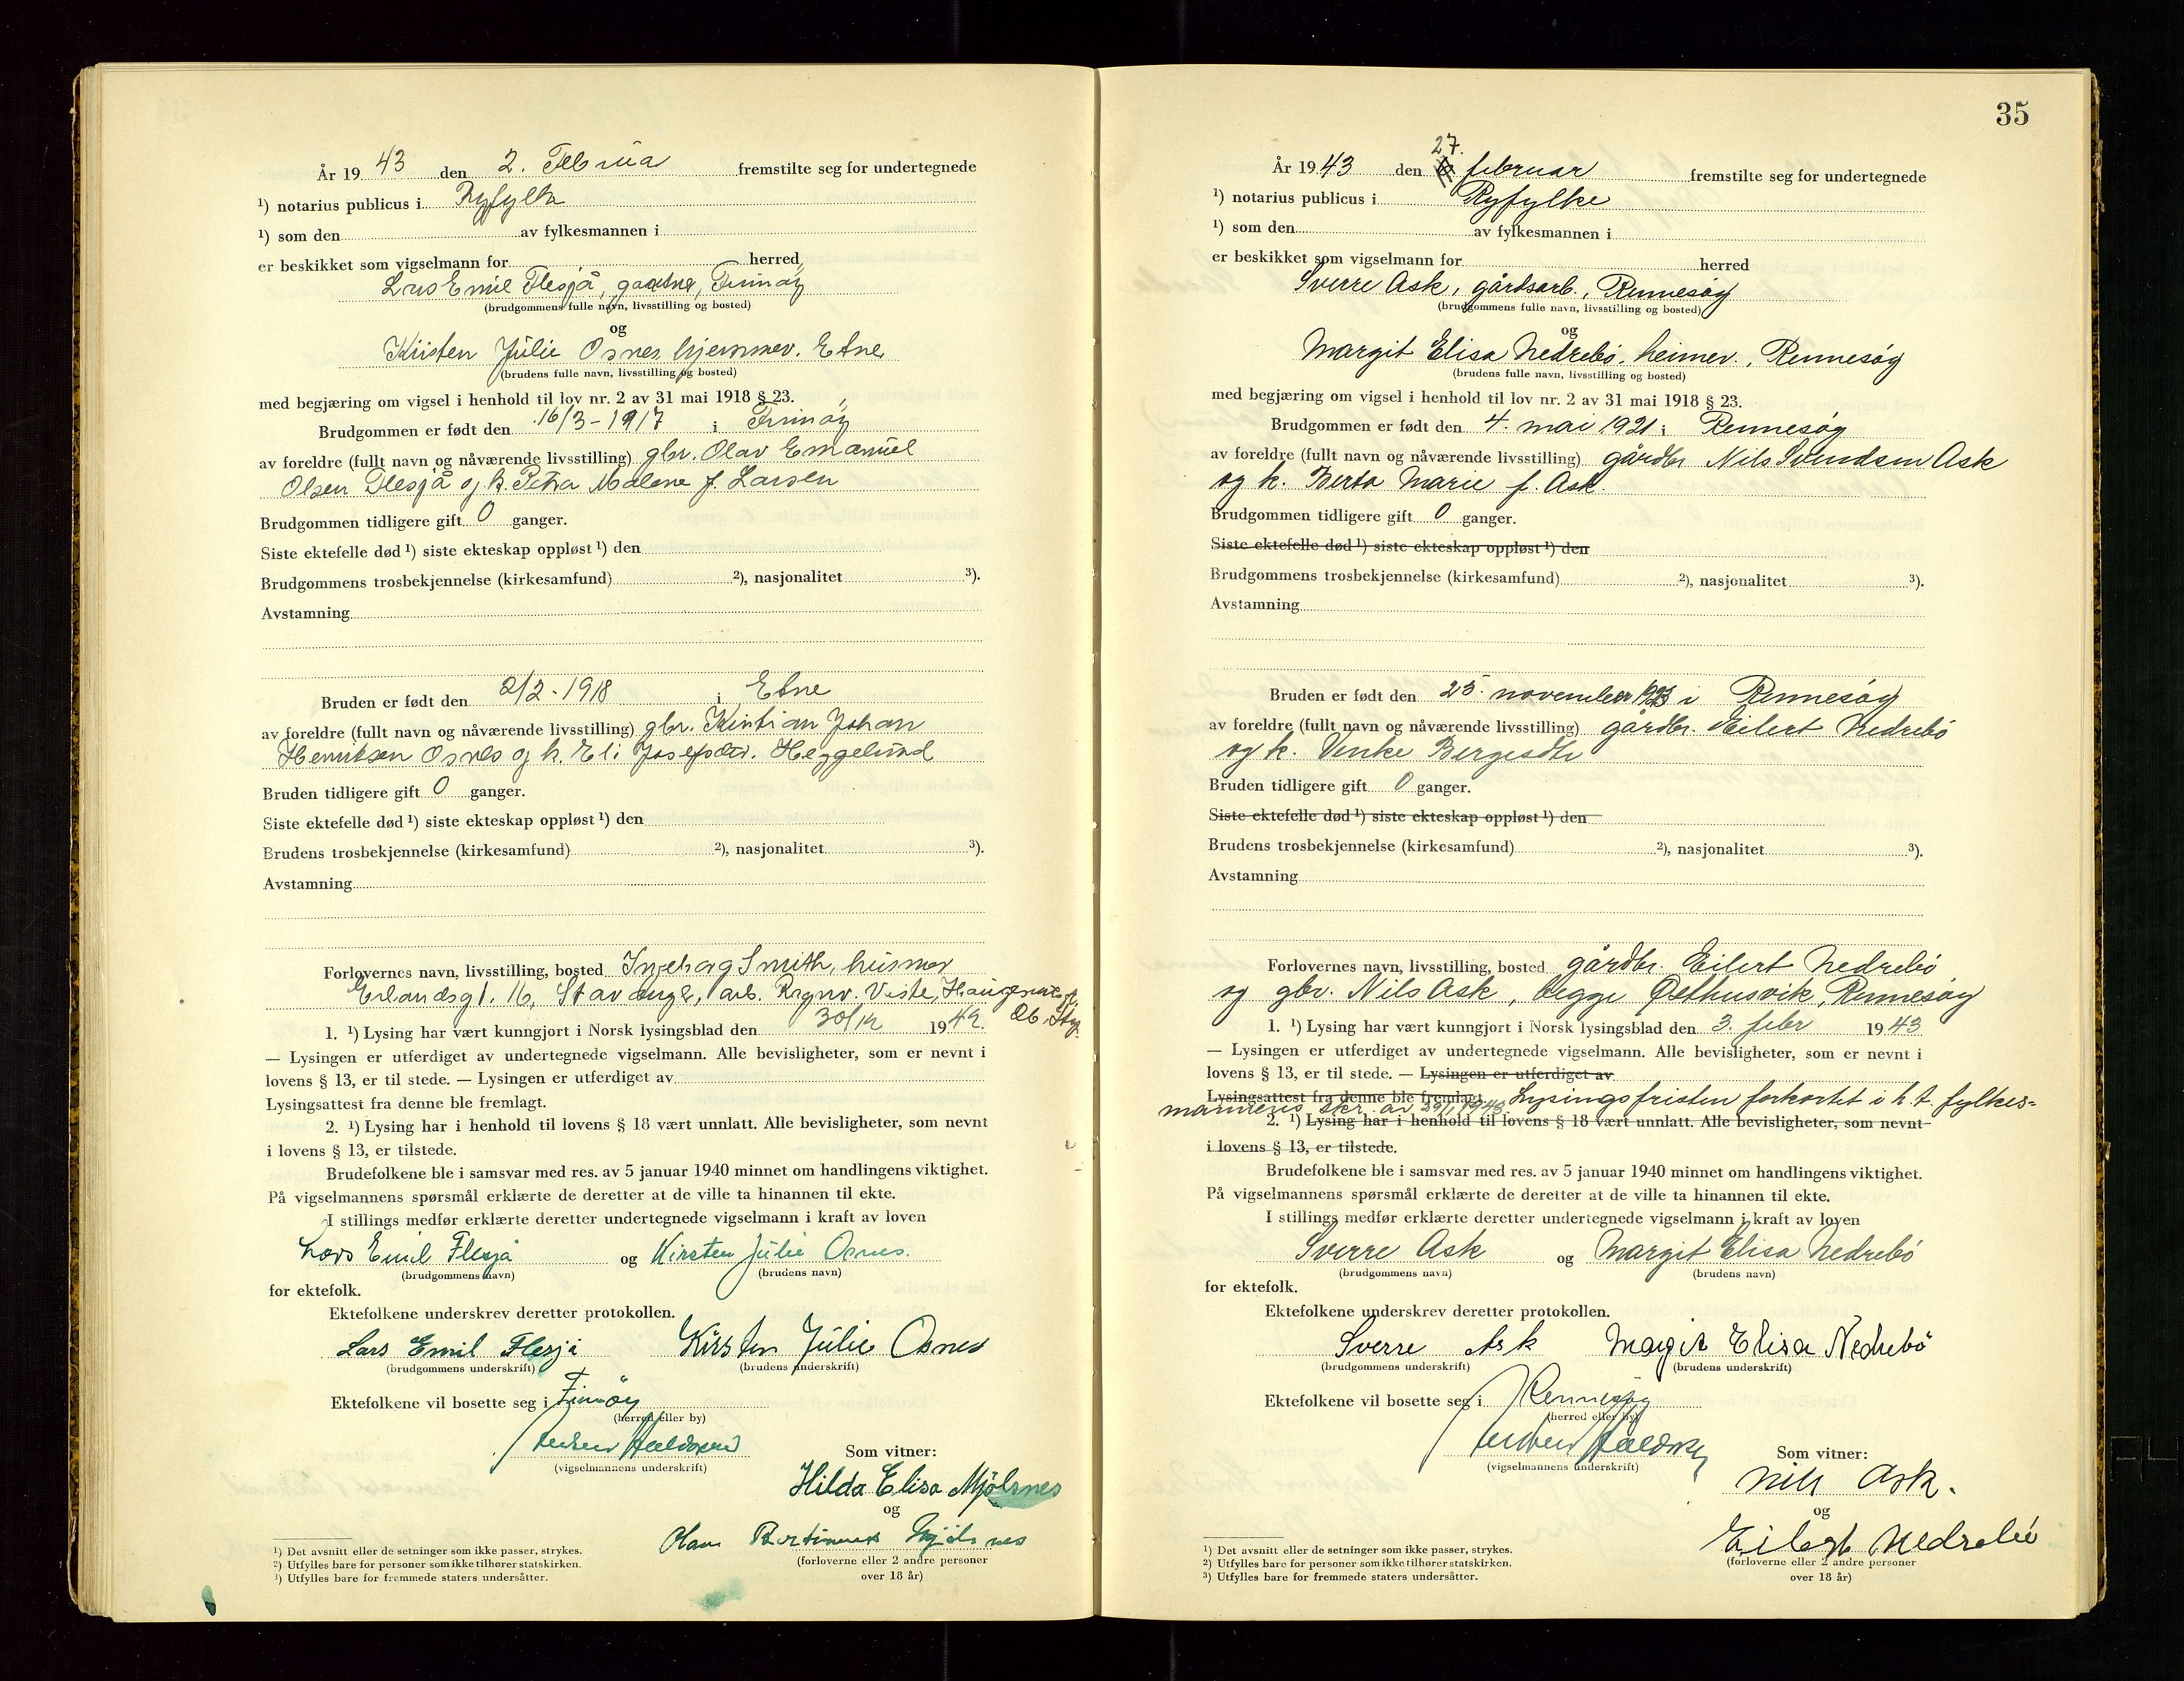 År 19 43 den 2. Februa fremstilte seg for undertegnede
¹) notarius publicus i Ryfylke
¹) som den av fylkesmannen i
er beskikket som vigselmann for herred
Lars Emil Flesjå, Finnöy
(brudgommens fulle navn, livsstilling og bosted)
og
Kirsten Julie Osnes hjemmev. Etne
(brudens fulle navn, livsstilling og bosted)
med begjæring om vigsel i henhold til lov nr. 2 av 31 mai 1918 § 23.
Brudgommen er født den 16/3-1917 i Finnöy
av foreldre (fullt navn og nåværende livsstilling) gbr. Olav Emanuel
Olsen Flesjå og h. Petra Malene f. Larsen
Brudgommen tidligere gift 0 ganger.
Siste ektefelle død ¹) siste ekteskap oppløst ¹) den
Brudgommens trosbekjennelse (kirkesamfund) ²), nasjonalitet ³).
Avstamning
Bruden er født den 2/2-1918 i Etne
av foreldre (fullt navn og nåværende livsstilling) gbr. Kristian Johan
Henriksen Osnes og h. Eli Josefsdtr. Heggelund
Bruden tidligere gift 0 ganger.
Siste ektefelle død ¹) siste ekteskap oppløst ¹) den
Brudens trosbekjennelse (kirkesamfund) ²), nasjonalitet ³).
Avstamning
Forlovernes navn, livsstilling, bosted Ingeborg Smith, husmor
Erlandsgt. 16, Stavanger, arb. Ragnv. Viste,
1. ¹) Lysing har vært kunngjort i Norsk lysingsblad den 30/12 1942.
— Lysingen er utferdiget av undertegnede vigselmann. Alle bevisligheter, som er nevnt i
lovens § 13, er til stede. — Lysingen er utferdiget av
Lysingsattest fra denne ble fremlagt.
2. ¹) Lysing har i henhold til lovens § 18 vært unnlatt. Alle bevisligheter, som nevnt
i lovens § 13, er tilstede.
Brudefolkene ble i samsvar med res. av 5 januar 1940 minnet om handlingens viktighet.
På vigselmannens spørsmål erklærte de deretter at de ville ta hinannen til ekte.
I stillings medfør erklærte deretter undertegnede vigselmann i kraft av loven
Lars Emil Flesjå og Kirsten Julie Osnes.
(brudgommens navn) (brudens navn)
for ektefolk.
Ektefolkene underskrev deretter protokollen.
Lars Emil Flesjå Kirsten Julie Osnes
(brudgommens underskrift) (brudens underskrift)
Ektefolkene vil bosette seg i Finnöy
(herred eller by)
(vigselmannens underskrift)
Som vitner:
Hilda Elisa Mjölsnes
og
Olav Mjölsnes
(forloverne eller 2 andre personer
over 18 år)
¹) Det avsnitt eller de setninger som ikke passer, strykes.
²) Utfylles bare for personer som ikke tilhører statskirken.
³) Utfylles bare for fremmede staters undersåtter.
35
År 19 43 den 27. februar fremstilte seg for undertegnede
¹) notarius publicus i Ryfylke
¹) som den av fylkesmannen i
er beskikket som vigselmann for herred
Sverre Ask, gårdsarb., Rennesöy
(brudgommens fulle navn, livsstilling og bosted)
og
Margit Elisa Nedrebö, heimev., Rennesöy
(brudens fulle navn, livsstilling og bosted)
med begjæring om vigsel i henhold til lov nr. 2 av 31 mai 1918 § 23.
Brudgommen er født den 4. mai 1921 i Rennesöy
av foreldre (fullt navn og nåværende livsstilling) gårdbr. Nils Svendsen Ask
og h. Berta Marie f. Ask.
Brudgommen tidligere gift 0 ganger.
Siste ektefelle død ¹) siste ekteskap oppløst ¹) den
Brudgommens trosbekjennelse (kirkesamfund) ²), nasjonalitet ³).
Avstamning
Bruden er født den 25. november 1923 i Rennesöy
av foreldre (fullt navn og nåværende livsstilling) gårdbr. Eilert Nedrebö
og h. Venke Bergesdtr
Bruden tidligere gift 0 ganger.
Siste ektefelle død ¹) siste ekteskap oppløst ¹) den
Brudens trosbekjennelse (kirkesamfund) ²), nasjonalitet ³).
Avstamning
Forlovernes navn, livsstilling, bosted gårdbr. Eilert Nedrebö
og gbr. Nils Ask, begge Østhusvik, Rennesöy
1. ¹) Lysing har vært kunngjort i Norsk lysingsblad den 3. febr 1943
— Lysingen er utferdiget av undertegnede vigselmann. Alle bevisligheter, som er nevnt i
lovens § 13, er til stede. — Lysingen er utferdiget av
Lysingsattest fra denne ble fremlagt. Lysingsfristen forkortet i h. t. fylkes=
mannens skr. av 29/1 1943.
2. ¹) Lysing har i henhold til lovens § 18 vært unnlatt. Alle bevisligheter, som nevnt
i lovens § 13, er tilstede.
Brudefolkene ble i samsvar med res. av 5 januar 1940 minnet om handlingens viktighet.
På vigselmannens spørsmål erklærte de deretter at de ville ta hinannen til ekte.
I stillings medfør erklærte deretter undertegnede vigselmann i kraft av loven
Sverre Ask og Margit Elisa Nedrebö
(brudgommens navn) (brudens navn)
for ektefolk.
Ektefolkene underskrev deretter protokollen.
Sverre Ask Margit Elisa Nedrebö
(brudgommens underskrift) (brudens underskrift)
Ektefolkene vil bosette seg i Rennesöy
(herred eller by)
(vigselmannens underskrift)
Som vitner:
Nils Ask.
og
Eilert Nedrebö
(forloverne eller 2 andre personer
over 18 år)
¹) Det avsnitt eller de setninger som ikke passer, strykes.
²) Utfylles bare for personer som ikke tilhører statskirken.
³) Utfylles bare for fremmede staters undersåtter.